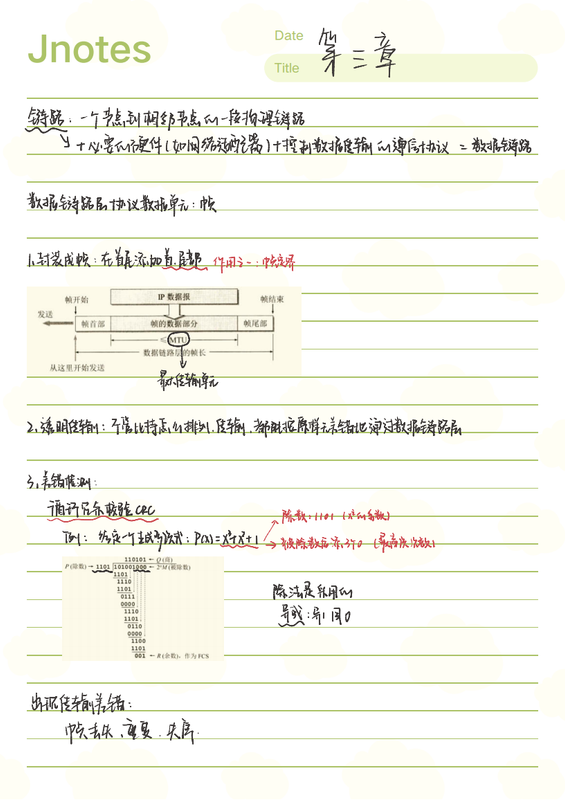 Jnotes
Date
Title
第三章
链路：一个节点到相邻节点的一段物理链路
+必要的硬件(如网络适配器)+控制数据传输的通信协议 = 数据链路
数据链路层协议数据单元：帧
1.封装成帧：在首尾添加首、尾部 作用之一：帧定界
IP 数据报
帧开始
帧结束
发送
帧首部
帧的数据部分
帧尾部
≤MTU
数据链路层的帧长
从这里开始发送
最大传输单元
2.透明传输：不管比特流的排列、传输，都能按原样无差错地通过数据链路层
3.差错检测：
循环冗余校验CRC
除数：1101 (x³的系数)
例：给定一个生成多项式：P(x)=x³+x²+1
被除数后添3个0 (最高次次数)
110101 ← Q (商)
P (除数) → 1101 101001000 ← 2ⁿM (被除数)
1101
1110
1101
0111
0000
1110
1101
0110
0000
1100
1101
001 ← R (余数)，作为 FCS
除法是采用的
异或：异1同0
出现传输差错：
帧丢失、重复、失序.